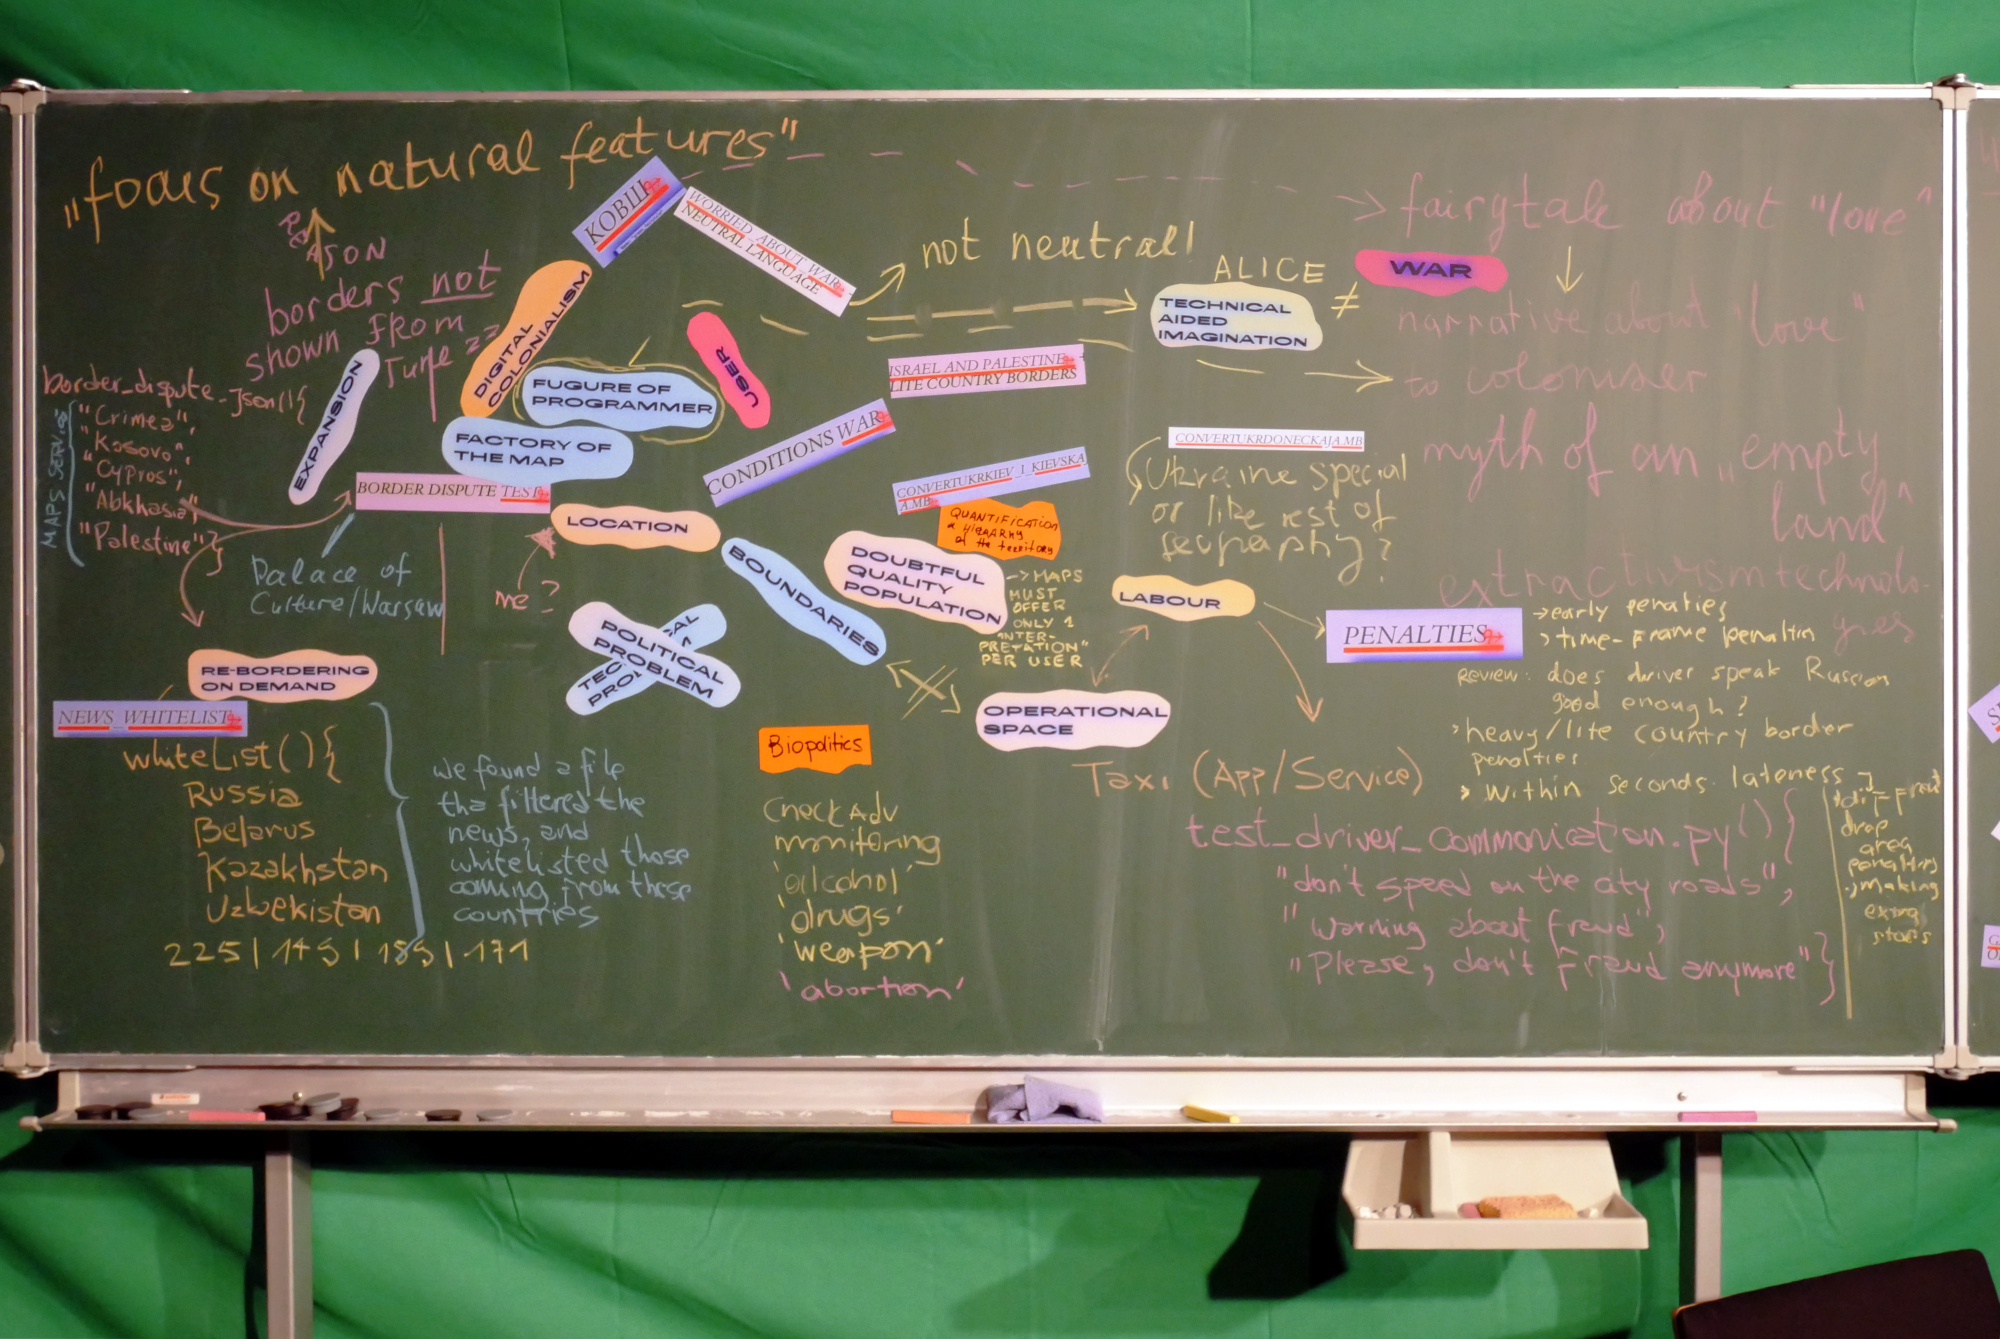 "focus on natural features"
REASON
borders not
shown from
June 22
border_dispute_json(){
"Crimea",
"Kosovo",
"Cypros",
"Abkhasia",
"Palestine"}
MAPS SERVICE
EXPANSION
DIGITAL
COLONIALISM
KOBILI
WORRIED_ABOUT_WAR
NEUTRAL LANGUAGE
not neutral!
FUGURE OF
PROGRAMMER
USER
FACTORY OF
THE MAP
BORDER DISPUTE TEST
Palace of
Culture/Warsaw
LOCATION
me?
CONDITIONS WAR
ISRAEL AND PALESTINE
LITE COUNTRY BORDERS
CONVERTUKRKIEV_1_KIEVSKA
A.MB
QUANTIFICATION
of the territory
BOUNDARIES
DOUBTFUL
QUALITY
POPULATION
-> MAPS
MUST
OFFER
ONLY 1
"INTER-
PRETATION"
PER USER
POLITICAL
PROBLEM
ALICE ≠
TECHNICAL
AIDED
IMAGINATION
WAR
fairytale about "love"
narrative about "love"
to coloniser
myth of an "empty
land"
extractivism technolo-
gies
CONVERTUKRDONECKAJA.MB
Ukraine special
or like rest of
geography?
LABOUR
OPERATIONAL
SPACE
PENALTIES
-> early penalties
> time-frame penalties
REVIEW: does driver speak Russian
good enough?
> heavy/lite country border
penalties
> within seconds lateness
drop
area
penalties
making
extra
stops
Taxi (App/Service)
test_driver_communication.py(){
"don't speed on the city roads",
"Warning about fraud",
"Please, don't fraud anymore"}
RE-BORDERING
ON DEMAND
NEWS_WHITELIST
whiteList(){
Russia
Belarus
Kazakhstan
Uzbekistan
225 | 149 | 159 | 171
We found a file
tha filtered the
news, and
whitelisted those
coming from these
countries
Biopolitics
Check Adv
monitoring
'alcohol'
'drugs'
'weapon'
'abortion'